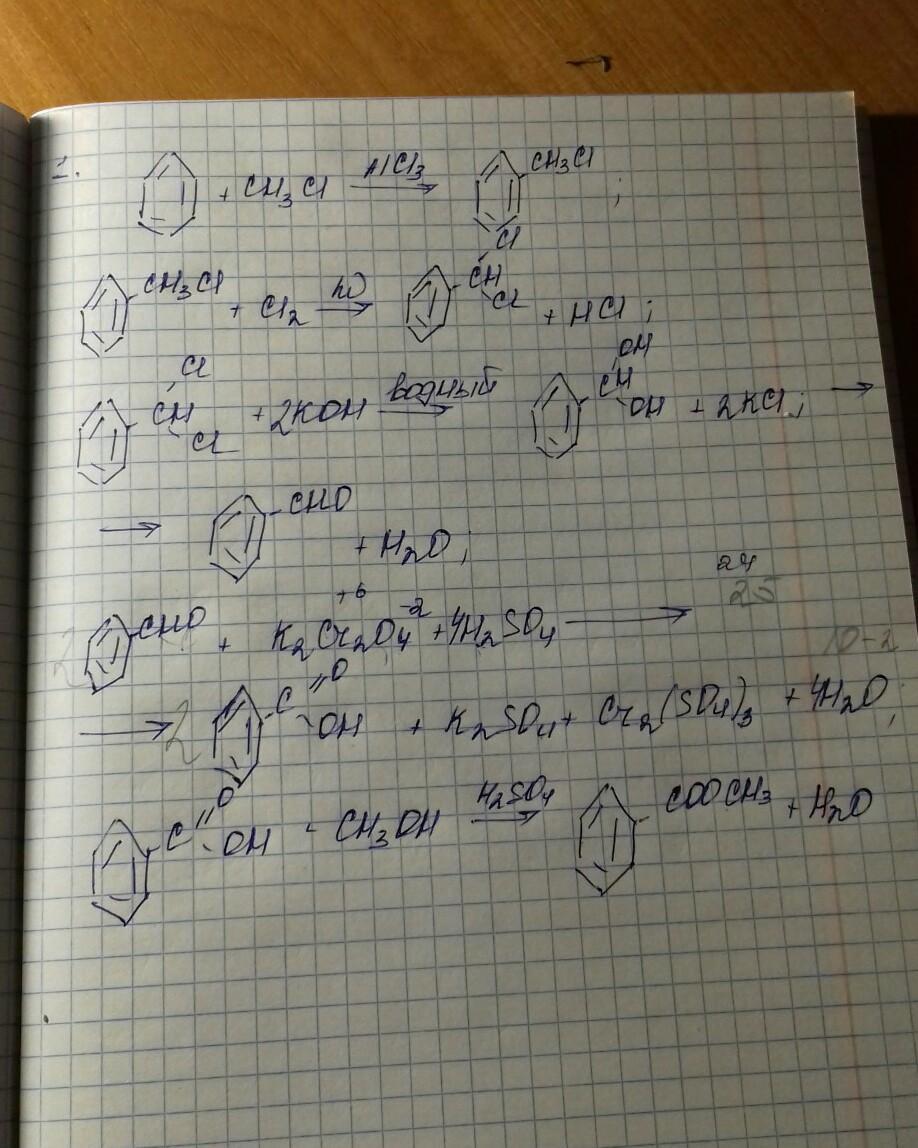 1. + CH₃Cl AlCl₃ → CH₃Cl ;
CH₃Cl + Cl₂ hν → CH Cl Cl + HCl ;
CH Cl Cl + 2KOH водный → CH OH OH + 2KCl ; →
→ CHO + H₂O ;
24
25
2 CHO + K₂Cr₂⁺⁶O₄⁻² + 4H₂SO₄ →
10-2
→ 2 C=O OH + K₂SO₄ + Cr₂(SO₄)₃ + 4H₂O ;
C=O OH - CH₃OH H₂SO₄ → COOCH₃ + H₂O